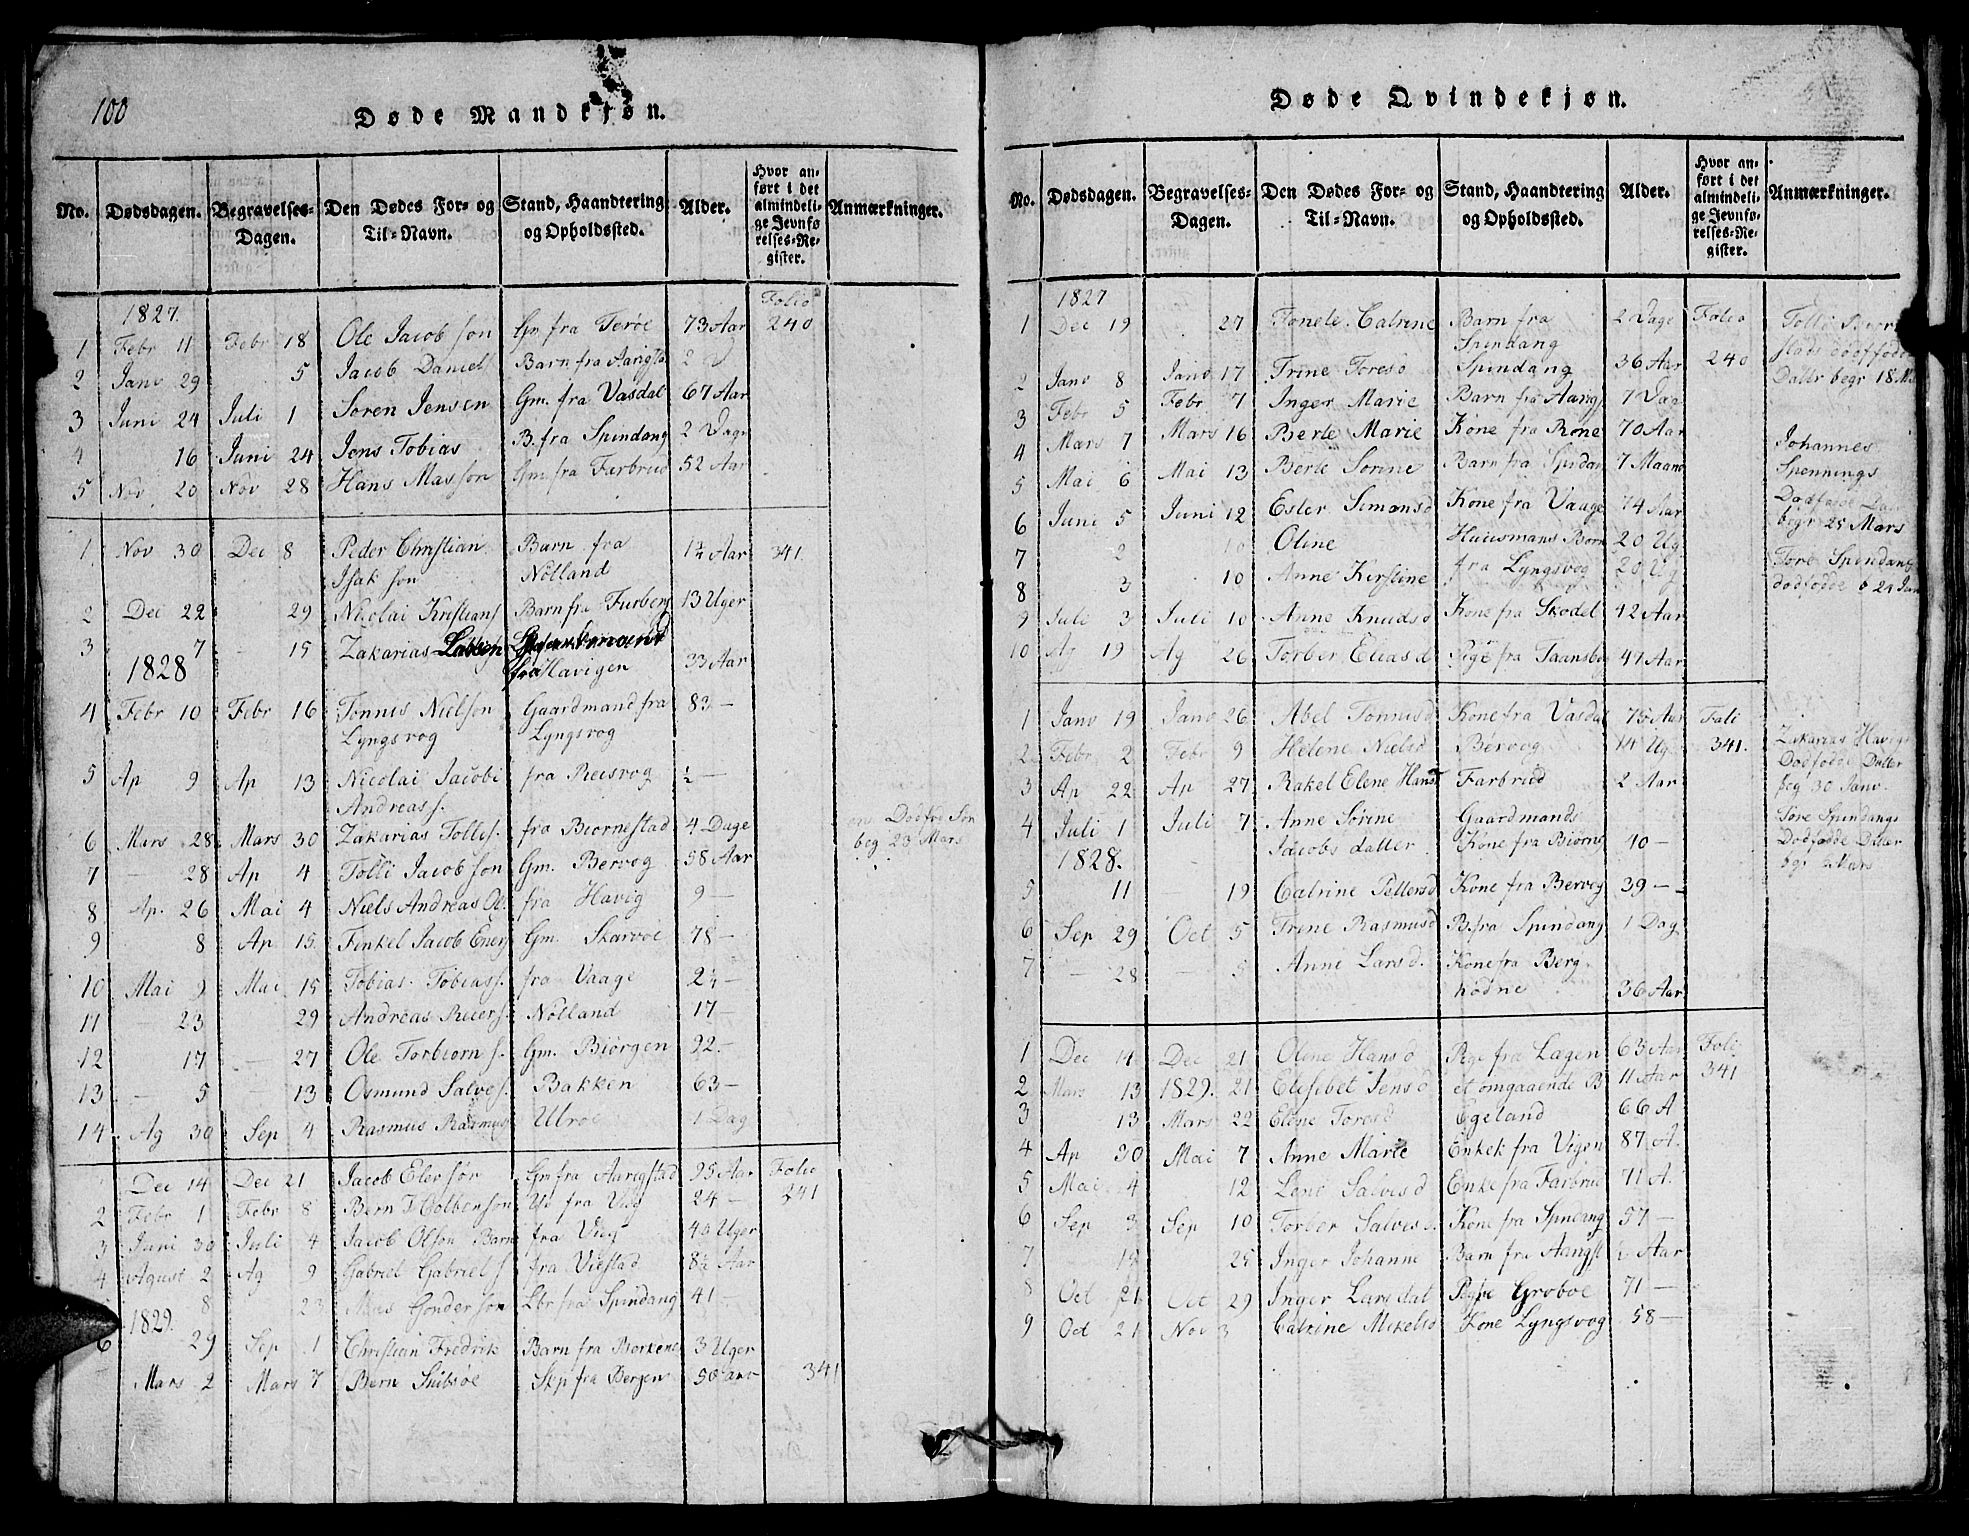 100
Døde Mandkjøn.
No. Dødsdagen. Begravelses-Dagen. Den Dødes For- og Til-Navn. Stand, Haandtering og Opholdssted. Alder. Hvor anført i det almindelige Jevnførelses-Register. Anmærkninger.
1827. Folio
1 Febr 11 Febr 18 Ole Jacobson Gm fra Terøe 73 Aar 240
2 Janv 29 5 Jacob Daniels Barn fra 2 D
3 Juni 24 Juli 1 Søren Jensen Gm. fra Vasdal 67 Aar
4 16 Juni 24 Jens Tobias B. fra Spindang 2 Dage
5 Nov 20 Nov 28 Hans Masson Gm fra Farbrud 52 Aar
1 Nov 30 Dec 8 Peder Christian Barn fra Aar 341.
Isakson Nolland
2 Dec 22 29 Nicolai Kristians Barn fra Furberg 13 Uger
3 7 15 Zakarias
1828 fra Havigen 33 Aar
4 Febr 10 Febr 16 Tonnis Nielson Gaardmand fra 83 —
Lyngsvog Lyngsvog
5 Ap 9 Ap 13 Nicolai Jacobi fra Reisvog ½ —
Andreass.
6 Mars 28 Mars 30 Zakarias Tollis. fra Biornestad 4 Dage
Dodfø Søn
beg 23 Mars
7 — 28 Ap 4 Tolli Jacobson Gm. Bervog 58 Aar
8 Ap. 26 Mai 4 Niels Andreas Ol. fra Havig 9 —
9 8 Ap 15 Tinkel Jacob Gm. Skarvøe 78 —
10 Mai 9 Mai 15 Tobias Tobiass. fra Vaage
11 — 23 29 Andreas Reiers. Nolland 17 —
12 17 — 27 Ole Torbiorns. Gm. Biørgen 92 —
13 — 5 13 Osmund Salves. Bakken 63 —
14 Ag 30 Sep 4 Rasmus Rasmus 1 Dag
Dec 14 Dec 21 Jacob Gm fra Aarigstad 95 Aar Folio
2 Febr 1 Febr 8 Bern T Colbenson fra 24 — 241
3 Juni 30 Juli 4 Jacob Olson Barn fra 40 Uger
4 Agust 2 Ag 9 Gabriel Gabriels fra Viestad 8½ Aar
8 23 Mas Gonderson fra Spindang 41 —
1829.
6 29 Sep 1 Christian Fredrik Barn fra 3 Uger
Mars 2 Mars 7 Bern fra Bergen 50 341
Døde Qvindekjøn.
No. Dødsdagen. Begravelses-Dagen. Den Dødes For- og Til-Navn. Stand, Haandtering og Opholdssted. Alder. Hvor anført i det almindelige Jevnførelses-Register. Anmærkninger.
1827
1 Dec 19 27 Tonele Catrine Barn fra 2 Dage Folio
Spindang
2 Janv 8 Janv 17 Trine Toresd Spindang 36 Aar 240
3 Febr 5 Febr 7 Inger Marie Barn fra Aarigs 7 Dag
4 Mars 7 Mars 16 Berte Marie Kone fra Rone 70 Aar
5 Mai 6 Mai 13 Berte Sorine Barn fra Spindan 7 Maan
6 Juni 5 Juni 12 Ester Simonsd Kone fra Vaage 74 Aar
7 2 10 Oline Huusmans Børn 20 Ug
8 3 10 Anne Kirstine fra Lyngsvog 20 Ug
9 Juli 3 Juli 10 Anne Knudsd Kone fra Skodel 42 Aar
10 Ag 19 Ag 26 Torber Eliasd Pige fra 47 Aar
Tolli
dødfødte
Datter begr 18
Johannes
Spennings
Dødfødde
begr 25 Mars
Tore Spindangs
dødfødde 24
1 Janv 19 Janv 26 Abel Tonnisd Kone fra Vasdal 75 Aar Foli
2 Febr 2 Febr 9 Helene Nielsd Børvog 14 Ug 341.
3 Ap 22 Ap 27 Rakel Elene Hansd Farbrud 2 Aar
4 Juli 1 Juli 7 Anne Sørine Gaardmands
1828. Jacobs datter Kone fra Biørne 40 —
5 11 — 19 Catrine Pettersd Kone fra Bervog 39 —
6 Sep 29 Oct 5 Trine Rasmusd B. fra Spindang 1 Dag
7 — 28 — 5 Anne Larsd. Kone fra Berg
hodne 36 Aar
Zakarias Havigs
Dødfødde Datter
beg 30 Janv.
Tore Spindangs
Dødfødde Datter
begr Mars
1 Dec 14 Dec 21 Olene Hansd Pige fra Lagen 63 Aar Foli
2 Mars 13 1829. 21 Elesibet Jensd et omgaaende B 11 Aar 341
3 13 Mars 22 Elene Toresd Egeland 66 A
4 Ap 30 Mai 7 Anne Marie Enkek fra Vigen 87 A.
5 Mai 4 12 Lene Salvesd Enke fra Farbrud 71 A.
6 Sep 3 Sep 10 Torber Salvesd. Kone fra Spindang 57 —
7 19 25 Inger Johanne Barn fra ½ Aar
8 Oct 21 Oct 29 Inger Larsdat Pige Groboe 71 —
9 Oct 21 Nov 3 Catrine Mikelsd Kone Lyngsvog 58 —